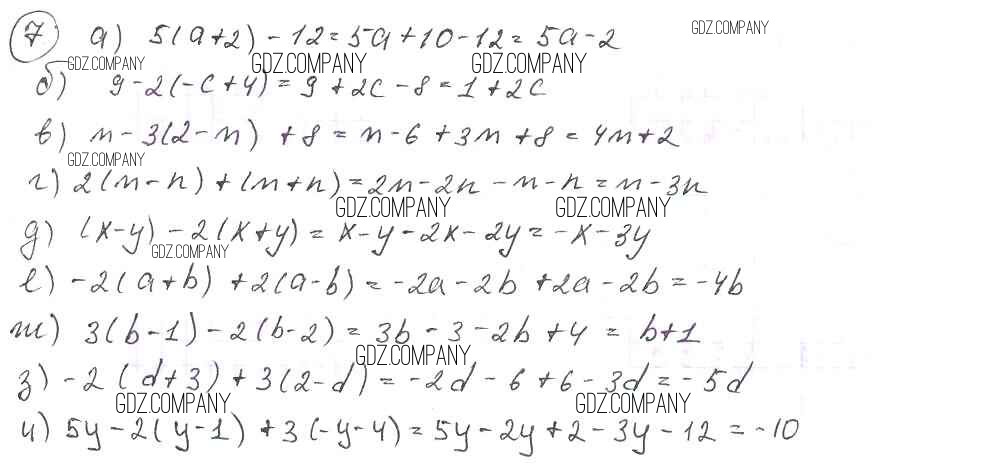 7 а) 5(a+2) - 12 = 5a+10-12 = 5a-2
GDZ.COMPANY
GDZ.COMPANY GDZ.COMPANY GDZ.COMPANY
б) 9-2(-c+4) = 9+2c-8 = 1+2c
в) m-3(2-m) +8 = m-6+3m+8 = 4m+2
GDZ.COMPANY
г) 2(m-n)+(m+n) = 2m-2n-m-n = m-3n
GDZ.COMPANY GDZ.COMPANY
д) (x-y) - 2(x+y) = x-y-2x-2y = -x-3y
GDZ.COMPANY
е) -2(a+b) +2(a-b) = -2a-2b+2a-2b = -4b
ж) 3(b-1) -2(b-2) = 3b-3-2b+4 = b+1
GDZ.COMPANY
з) -2(d+3) +3(2-d) = -2d-6+6-3d = -5d
GDZ.COMPANY GDZ.COMPANY
и) 5y-2(y-1) +3(-y-4) = 5y-2y+2-3y-12 = -10